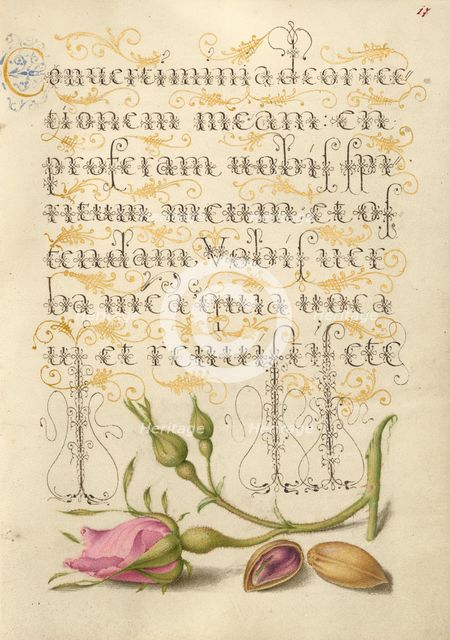 17
Conuertimini ad correc
tionem meam: en
proferam uobis spi
ritum meum et os
tendam Vobis uer
ba mea quia uoca
ui et renuistis etc
Heritage
Heritage
Heritage
Heritage